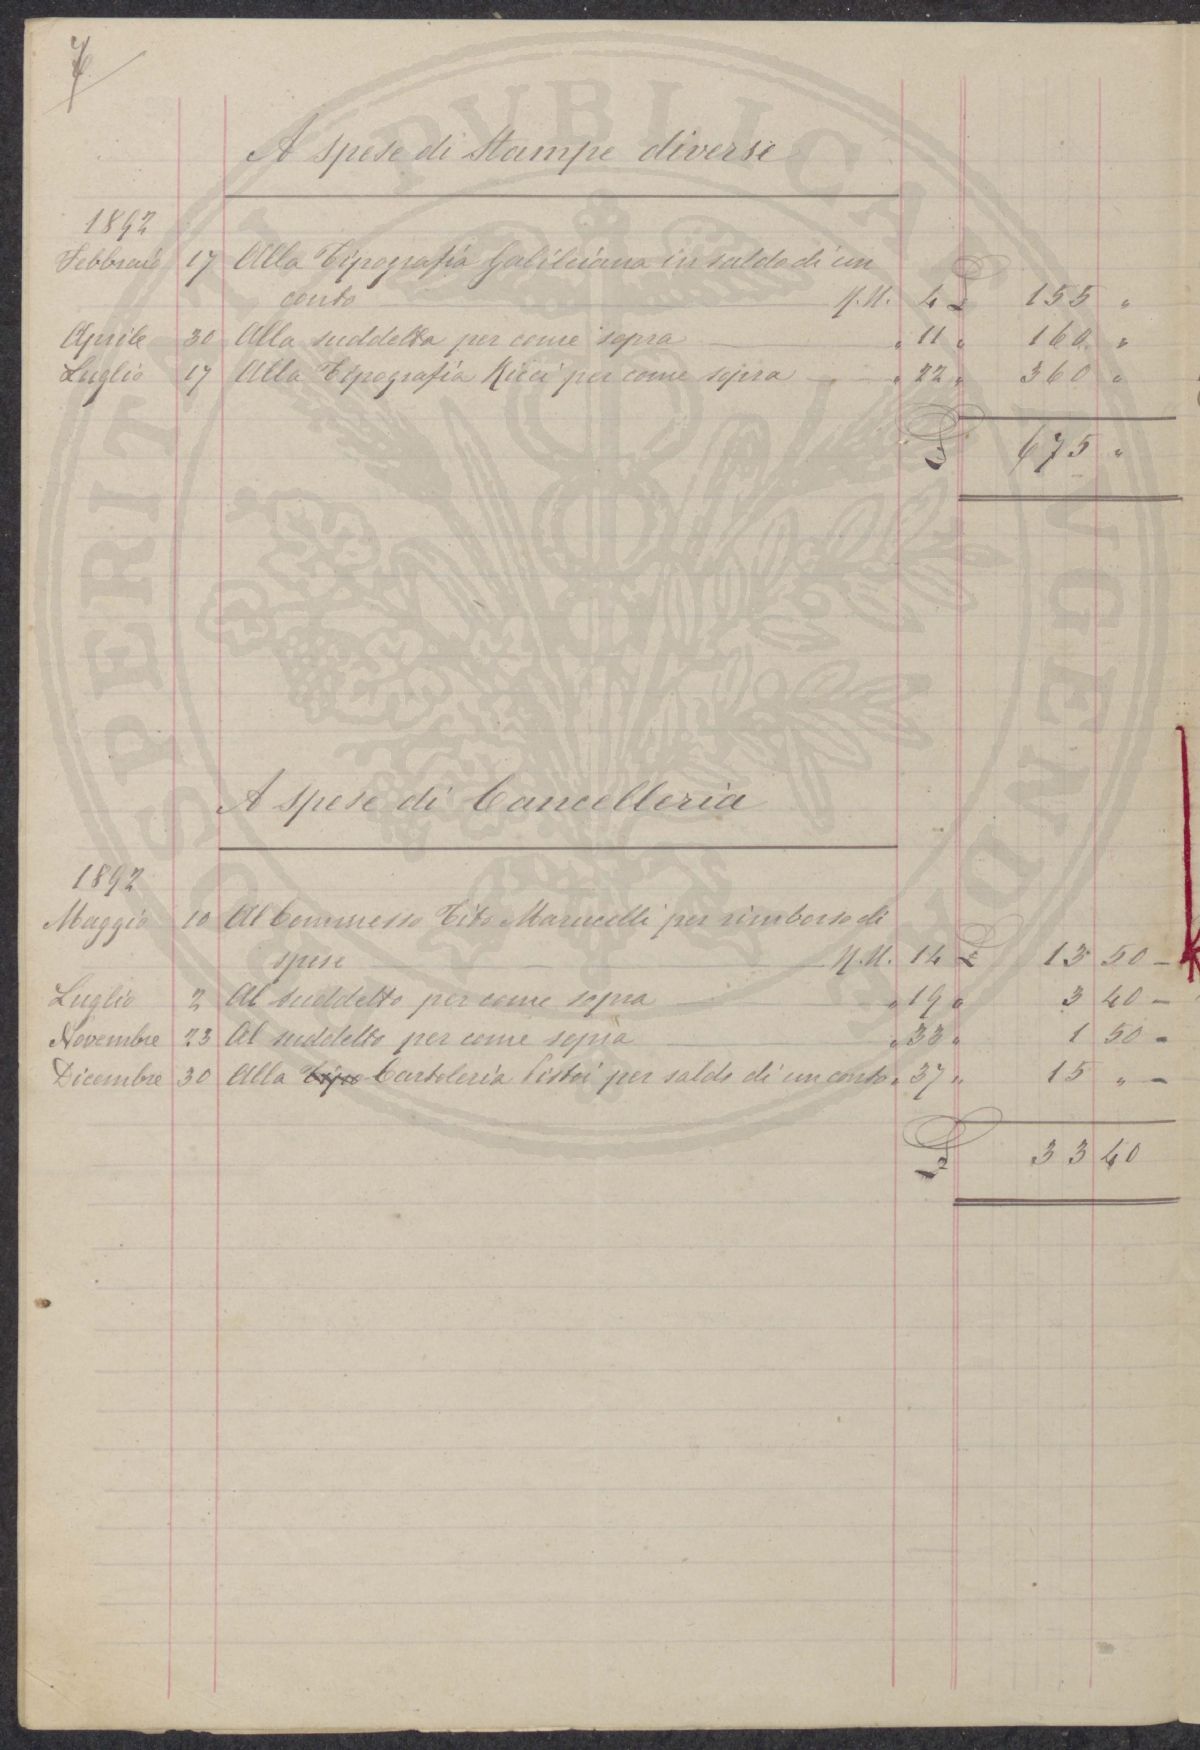 A spese di Stampe diverse
1892
Febbraio 17 Alla Tipografia Galileiana in saldo di un
conto M.M. 4 £ 155 "
Aprile 30 Alla suddetta per come sopra " 11 " 160 "
Luglio 17 Alla Tipografia Ricci per come sopra " 22 " 360 "
£ 675 "
A spese di Cancelleria
1892
Maggio 10 Al Commesso Tito Marucelli per rimborso di
spese M.M. 14 £ 13 50 -
Luglio 2 Al suddetto per come sopra " 19 " 3 40 -
Novembre 23 Al suddetto per come sopra " 33 " 1 50 -
Dicembre 30 Alla Tipo Cartoleria Pistoi per saldo di un conto " 37 " 15 " -
£ 33 40